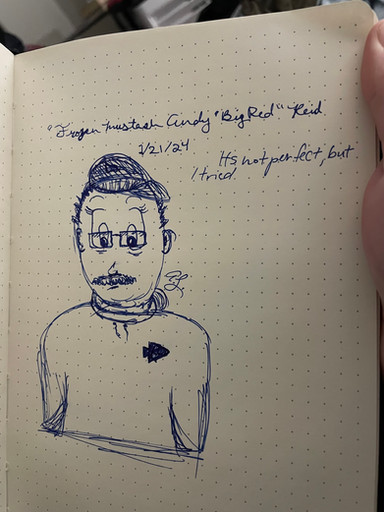 "Frozen mustach Andy "Big Red" Reid
1/21/24
Its not perfect, but
I tried.